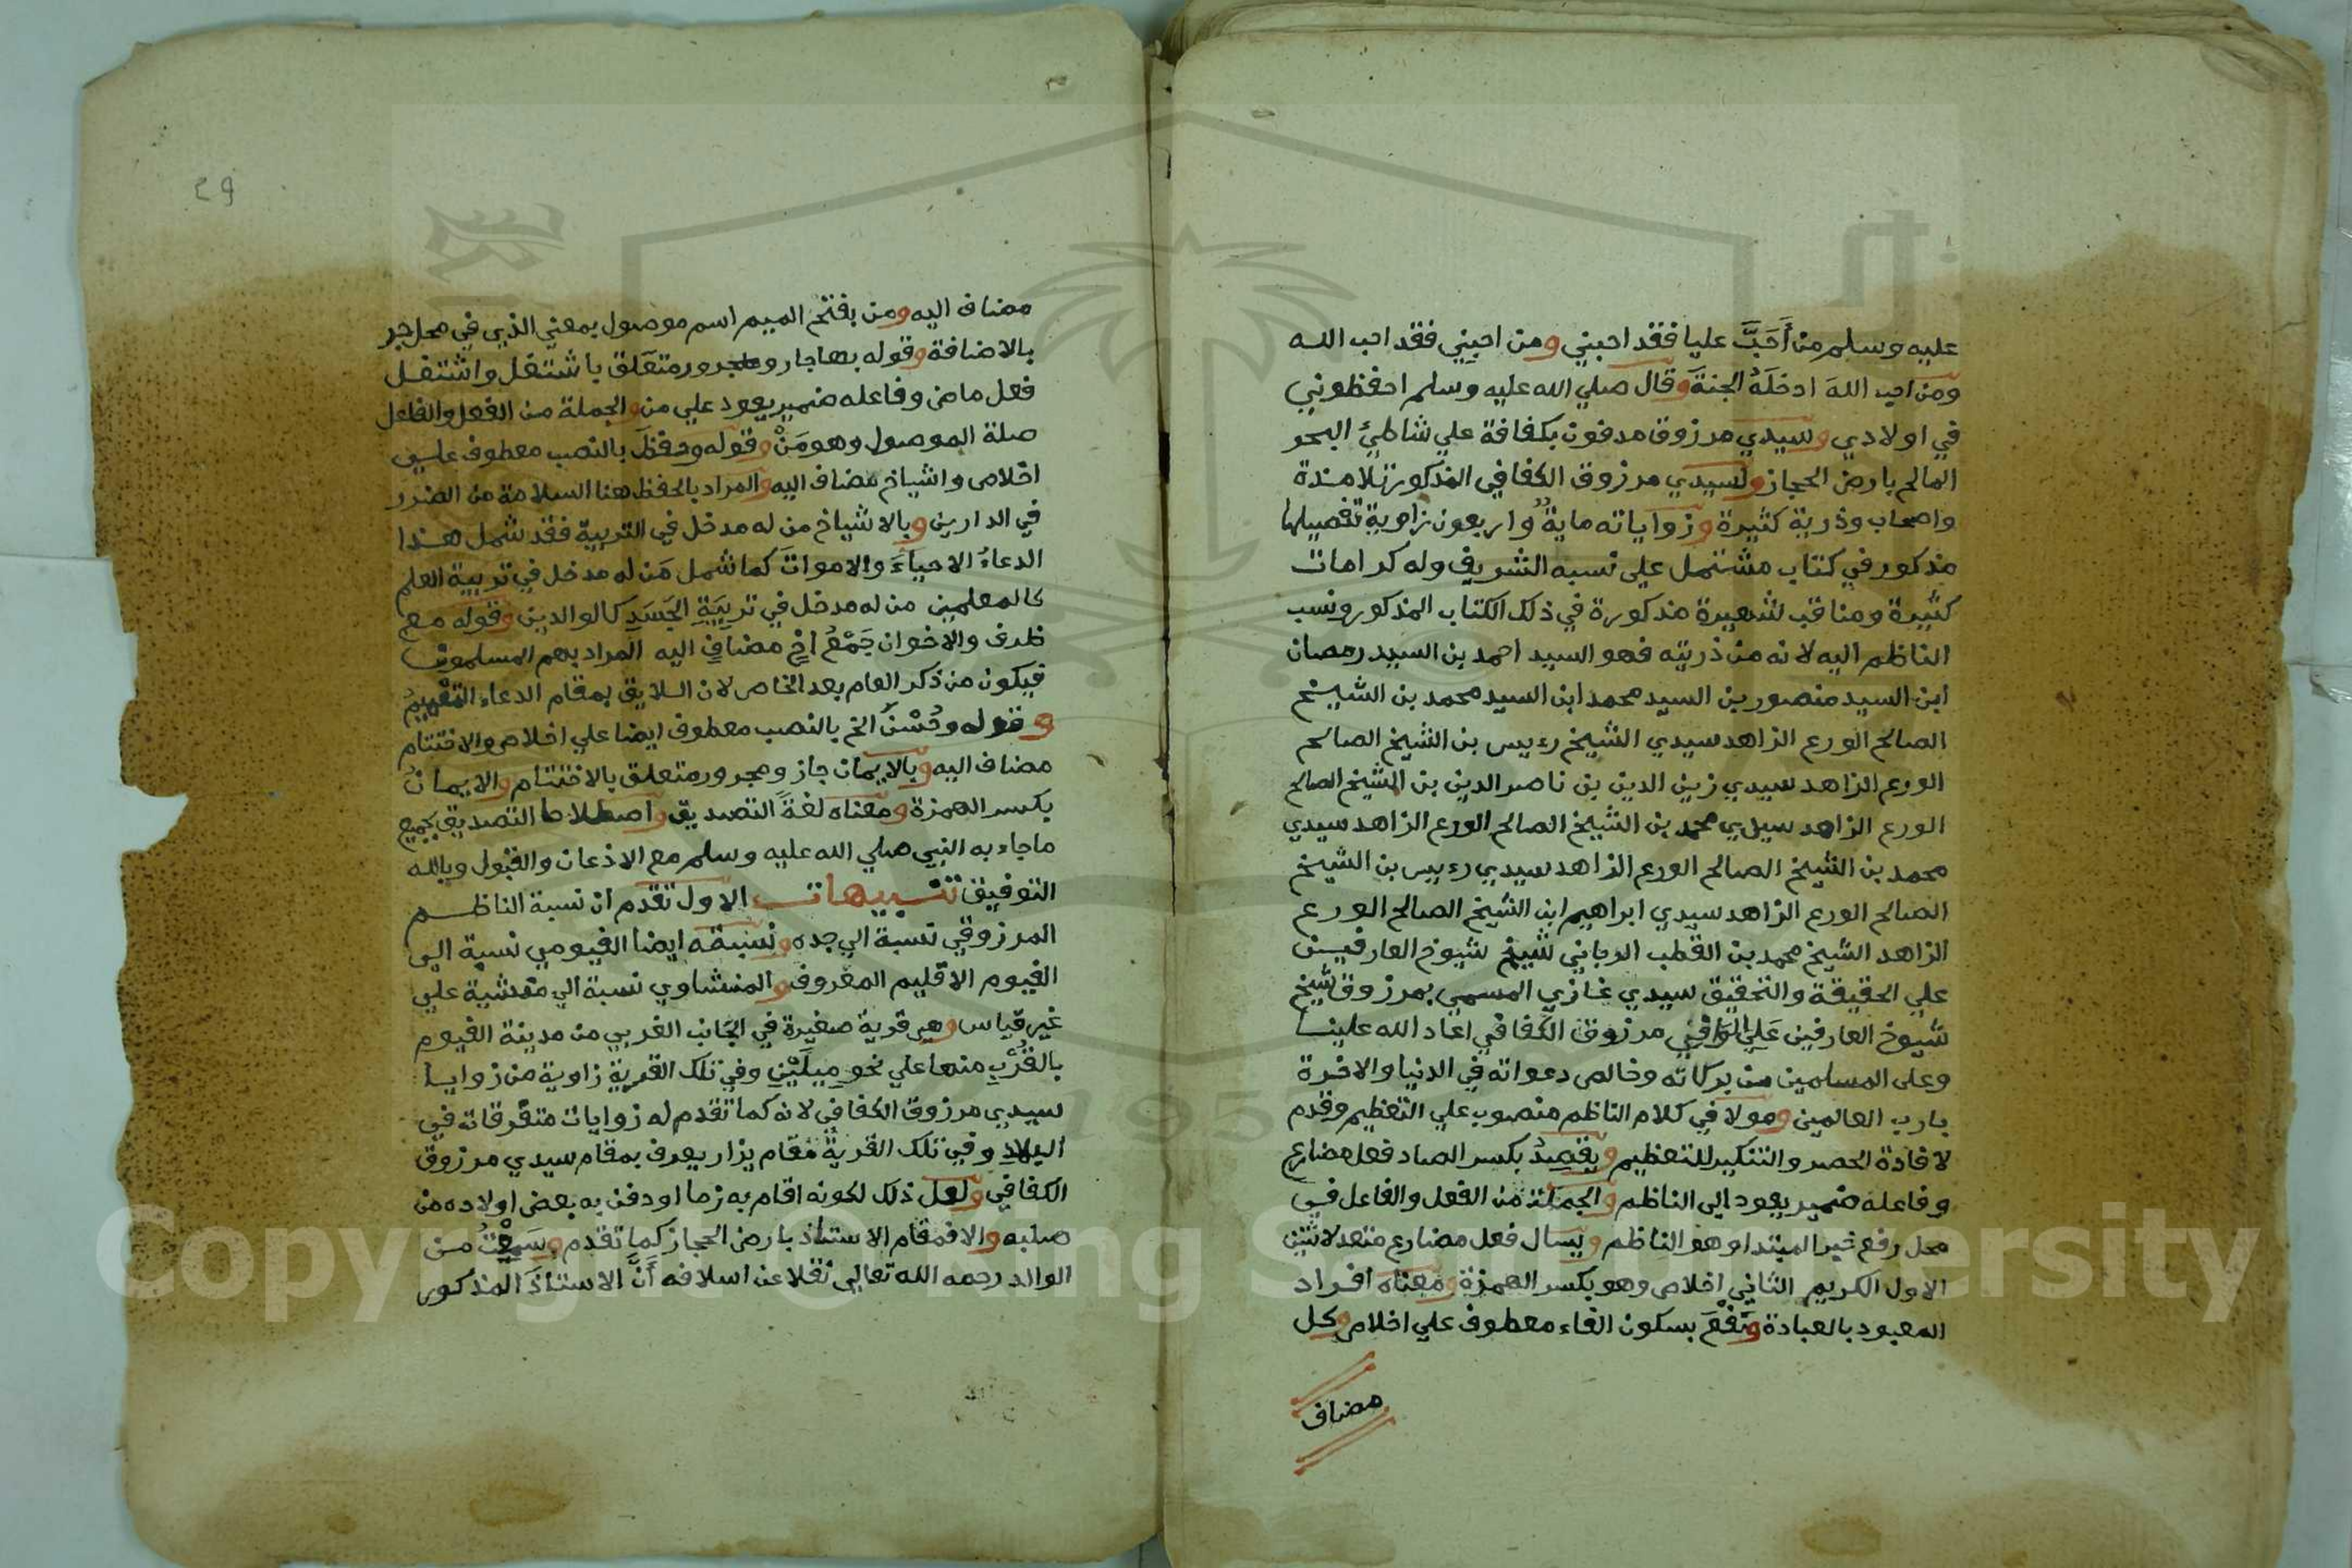 عليه وسلم من أَحَبَّ عليا فقد احبني ومن احبني فقد احب الله
ومن احب اللهَ ادخلَهُ الجنةَ وقال صلي الله عليه وسلم احفظوني
في اولادي وسيدي مرزوق مدفون بكفافة علي شاطئ البحر
المالح بارض الحجاز ولسيدي مرزوق الكفافي المذكور تلامذة
واصحاب وذرية كثيرة وزواياته ماية واربعون زاوية تفصيلها
مذكور في كتاب مشتمل علي نسبه الشريف وله كرامات
كثيرة ومناقب شهيرة مذكورة في ذلك الكتاب المذكور ونسب
الناظم اليه لانه من ذريته فهو السيد احمد بن السيد رمضان
ابن السيد منصور بن السيد محمد ابن السيد محمد بن الشيخ
الصالح الورع الزاهد سيدي الشيخ رءييس بن الشيخ الصالح
الورع الزاهد سيدي زين الدين بن ناصر الدين بن الشيخ الصالح
الورع الزاهد سيدي محمد بن الشيخ الصالح الورع الزاهد سيدي
محمد بن الشيخ الصالح الورع الزاهد سيدي رءييس بن الشيخ
الصالح الورع الزاهد سيدي ابراهيم ابن الشيخ الصالح الورع
الزاهد الشيخ محمد بن القطب الرباني شيخ شيوخ العارفين
علي الحقيقة والتحقيق سيدي غازي المسمي بمرزوق شيخ
شيوخ العارفين مرزوق الكفافي اعاد الله علينا
وعلى المسلمين من بركاته وخالص دعواته في الدنيا والاخرة
يارب العالمين ومولا في كلام الناظم منصوب علي التعظيم وقدم
لافادة الحصر والتنكير للتعظيم ويقصِدُ بكسر الصاد فعل مضارع
وفاعله ضمير يعود الي الناظم والجملة من الفعل والفاعل في
محل رفع خبر المبتدا وهو الناظم ويسال فعل مضارع متعد لاثنين
الاول الكريم الثاني اخلاص وهو بكسر الهمزة ومعناه افراد
المعبود بالعبادة ونَفْعَ بسكون الفاء معطوف علي اخلاص وكل
مضاف
٢٩
مضاف اليه ومن بفتح الميم اسم موصول بمعني الذي في محل جر
بالاضافة وقوله بها جار ومجرور متعلق باشتغل واشتغل
فعل ماض وفاعله ضمير يعود علي من والجملة من الفعل والفاعل
صلة الموصول وهو مَنْ وقوله وحفظَ بالنصب معطوف علي
اخلاص واشياخ مضاف اليه والمراد بالحفظ هنا السلامة من الضرر
في الدارين وبالاشياخ من له مدخل في التربية فقد شمل هذا
الدعاءُ الاحياءَ والامواتَ كما شمل مَن له مدخل في تربية العلم
كالمعلمين من له مدخل في تربِيَةِ الجَسَدِ كالوالدين وقوله مع
ظرف والاخوان جَمْعُ أخٍ مضافٍ اليه المراد بهم المسلمون
فيكون من ذكر العام بعد الخاص لان اللايق بمقام الدعاء التعميمُ
وقوله وحُسْنَ الخ بالنصب معطوف ايضا علي اخلاص والاختتام
مضاف اليه وبالايمان جار ومجرور متعلق بالاختتام والايمانُ
بكسر الهمزة ومعناه لغةً التصديق واصطلاحا التصديق بجميع
ماجاء به النبي صلي الله عليه وسلم مع الاذعان والقبول وبالله
التوفيق تنبيهات الاول تقدم ان نسبة الناظم
المرزوقي نسبة الي جده ونسبته ايضا الفيومي نسبة الي
الفيوم الاقليم المعروف والمنشاوي نسبة الي منشية علي
غير قياس وهي قرية صغيرة في الجانب الغربي من مدينة الفيوم
بالقُرْبِ منها علي نحو مِيلَيْنِ وفي تلك القرية زاوية من زوايا
سيدي مرزوق الكفافي لانه كما تقدم له زوايات متفرقات في
البلاد وفي تلك القرية مقام يزار يعرف بمقام سيدي مرزوق
الكفافي ولعل ذلك لكونه اقام به زمنا او دفن به بعض اولاده من
صلبه والا فمقام الاستاذ بارض الحجاز كما تقدم وسَمِعْتُ من
الوالد رحمه الله تعالي نقلا عن اسلافه أنَّ الاستاذَ المذكور
Copyright © King Saud University